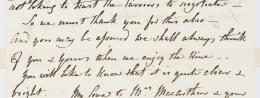 not liking to trust the Savours to negotiate —
So we must thank you for this also —
And you may be assured we shall always think
of you & yours when we enjoy the time —
You will like to know that it is quite clear &
bright. My love to Mrs Macarthur & your